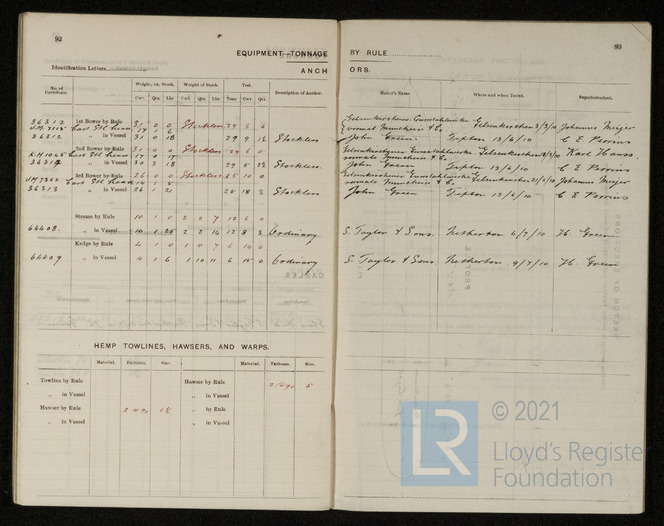 92
EQUIPMENT TONNAGE
Identification Letters
ANCH
No. of Certificate.
Weight, ex. Stock.
Weight of Stock.
Test.
Description of Anchor.
Cwt. Qrs. Lbs. Cwt. Qrs. Lbs. Tons Cwt. Qrs.
36312 1st Bower by Rule 31 0 0 Stockless 29
Cast Stl head 17 1 6
36312 „ in Vessel 31 0 18 29 9 Stockless
2nd Bower by Rule 31 0 0 Stockless 29 6 0
Cast Stl head 17 0 17
„ in Vessel 30 3 18 29 5 Stockless
3rd Bower by Rule 26 0 0 Stockless 25 10 0
Cast Stl head 14 1
36313 „ in Vessel 26 1 21 25 18 Stockless
Stream by Rule 10 1 0 2 2 7 12 6 0
64408 „ in Vessel 10 1 25 2 2 14 12 8 3 Ordinary
Kedge by Rule 4 1 0 1 0 7 6 14 0
64409 „ in Vessel 4 1 6 1 10 11 6 15 0 Ordinary
HEMP TOWLINES, HAWSERS, AND WARPS.
Material. Fathoms. Size. Material. Fathoms. Size.
Towlines by Rule Hawser by Rule 5
„ in Vessel „ in Vessel
Hawser by Rule „ by Rule
„ in Vessel „ in Vessel
93
BY RULE
ORS.
Maker's Name. Where and when Tested. Superintendent.
Gelsenkirchener Gussstahlwerke Gelsenkirchen 3/3/10 Johannes Meijer
vormals Munscheid & Co
John Green Tipton 13/6/10 C E Perrins
Gelsenkirchener Gussstahlwerke Gelsenkirchen Karl Hanss
vormals Munscheid & Co
John Green Tipton 13/6/10 C E Perrins
Gelsenkirchener Gussstahlwerke Gelsenkirchen Johannes Meijer
vormals Munscheid & Co
John Green Tipton 13/6/10 C E Perrins
S. Taylor & Sons Netherton 6/7/10 H. Green
S. Taylor & Sons Netherton 9/7/10 H. Green
© 2021
LR
Lloyd's Register
Foundation